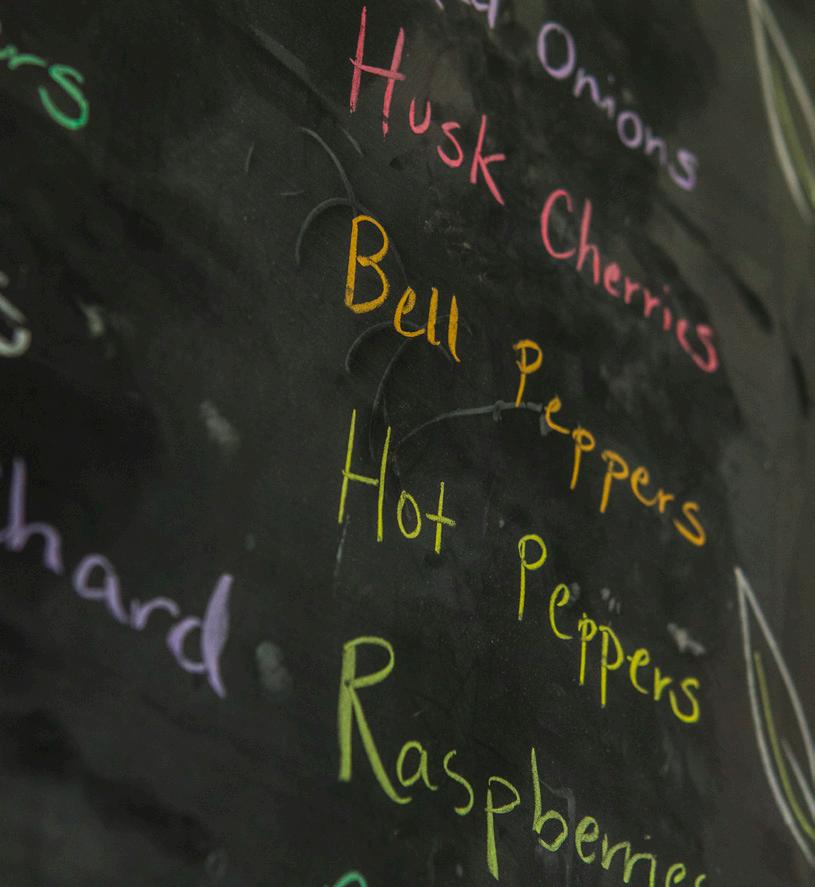 Onions
Husk Cherries
Bell Peppers
Hot Peppers
hard
Raspberries